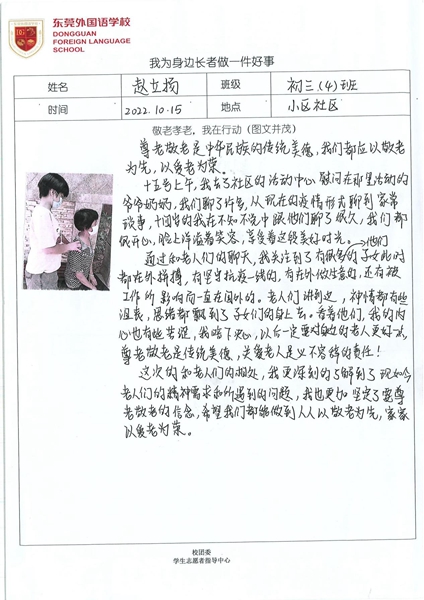 东莞外国语学校
DONGGUAN
FOREIGN LANGUAGE
SCHOOL
我为身边长者做一件好事
姓名 赵立扬 班级 初三(4)班
时间 2022.10.15 地点 小区社区
敬老孝老，我在行动（图文并茂）
尊老敬老是中华民族的传统美德，我们都应以敬老
为先，以爱老为荣。
十五号上午，我去了社区的活动中心，慰问在那里活动的
爷爷奶奶，我们聊了许多，从现在的疫情形式聊到家常
琐事，十四岁的我在不知不觉中跟他们聊了很久，我们都
很开心，脸上洋溢着笑容，享受着这段美好时光。
通过和老人们的聊天，我关注到了有很多的子女此时 他们
都在外拼搏，有坚守抗疫一线的，有在外做生意的，还有被
工作所影响而一直在国外的。老人们讲到这，神情都有些
沮丧，思绪都飘到了子女们的身上去。看着他们，我的内
心也有些苦涩，我暗下决心，以后一定要对身边的老人更好，
尊老敬老是传统美德，关爱老人是义不容辞的责任！
这次的和老人们的相处，我更深刻的了解到了现如今
老人们的精神需求和所遇到的问题，我也更加坚定了要尊
老敬老的信念，希望我们都能做到人人以敬老为先，家家
以爱老为荣。
校团委
学生志愿者指导中心